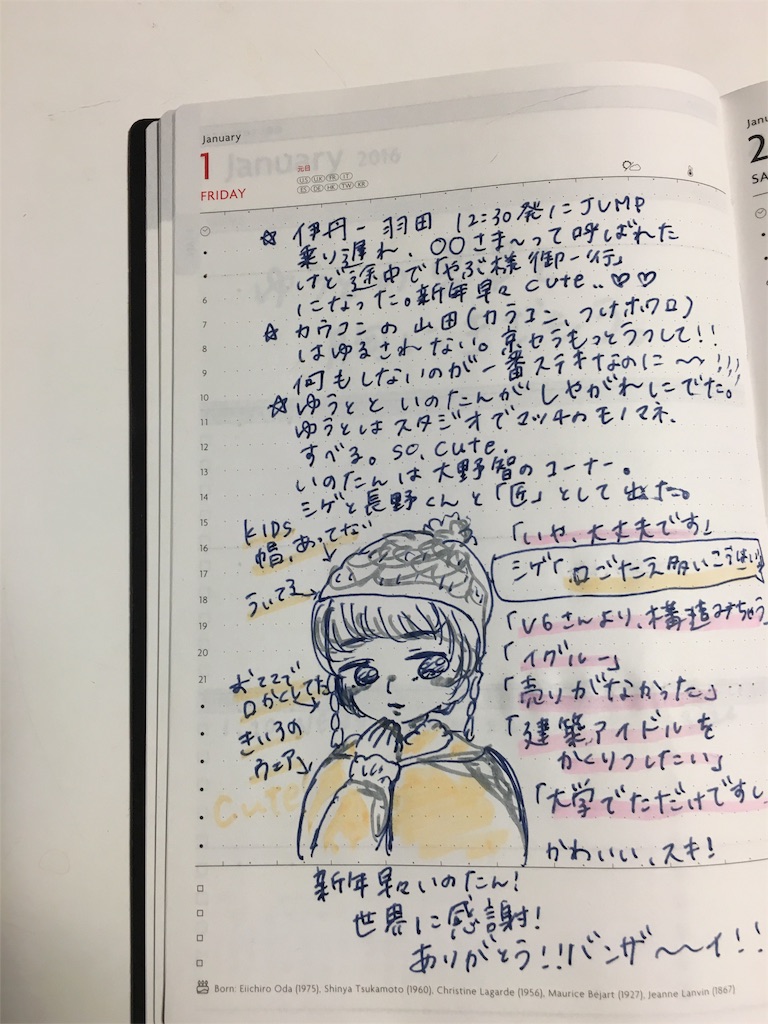 January
1
January 2016
元日
US UK FR IT
ES DE HK TW KR
FRIDAY
☆ 伊丹-羽田 12:30発にJUMP
乗り遅れ、○○さま〜って呼ばれた
けど途中で「やぶ様御一行」
になった。新年早々cute..♡♡
☆ カウコンの山田(カラコン、つけホクロ)
はゆるされない。京セラもっとうつして!!
何もしないのが一番ステキなのに〜〜!!!
☆ ゆうとといのたんがしやがれにでた。
ゆうとはスタジオでマッチのモノマネ、
すべる。so,cute.
いのたんは大野智のコーナー。
シゲと長野くんと「匠」として出た。
6
7
8
9
10
11
12
13
14
15
16
17
18
19
20
21
KIDS
帽、あってない
ういてる
おててで
口かくしてた
きいろの
ウェア
cute
「いや、大丈夫です」
シゲ「口ごたえ多いこうはい」
「V6さんより、構造みちゃう
「イグルー」
「売りがなかった」…
「建築アイドルを
かくりつしたい」
「大学でただけですし
かわいい、スキ!
新年早々いのたん!
世界に感謝!
ありがとう!!バンザ〜〜イ!!
Born: Eiichiro Oda (1975), Shinya Tsukamoto (1960), Christine Lagarde (1956), Maurice Béjart (1927), Jeanne Lanvin (1867)
Janu
2
SA